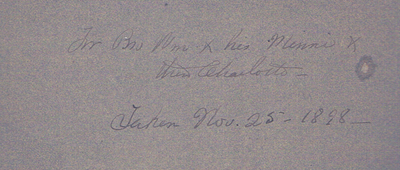 For Bro Wm & her Minnie &
thru Charlotte —
Taken Nov. 25 - 1898 —